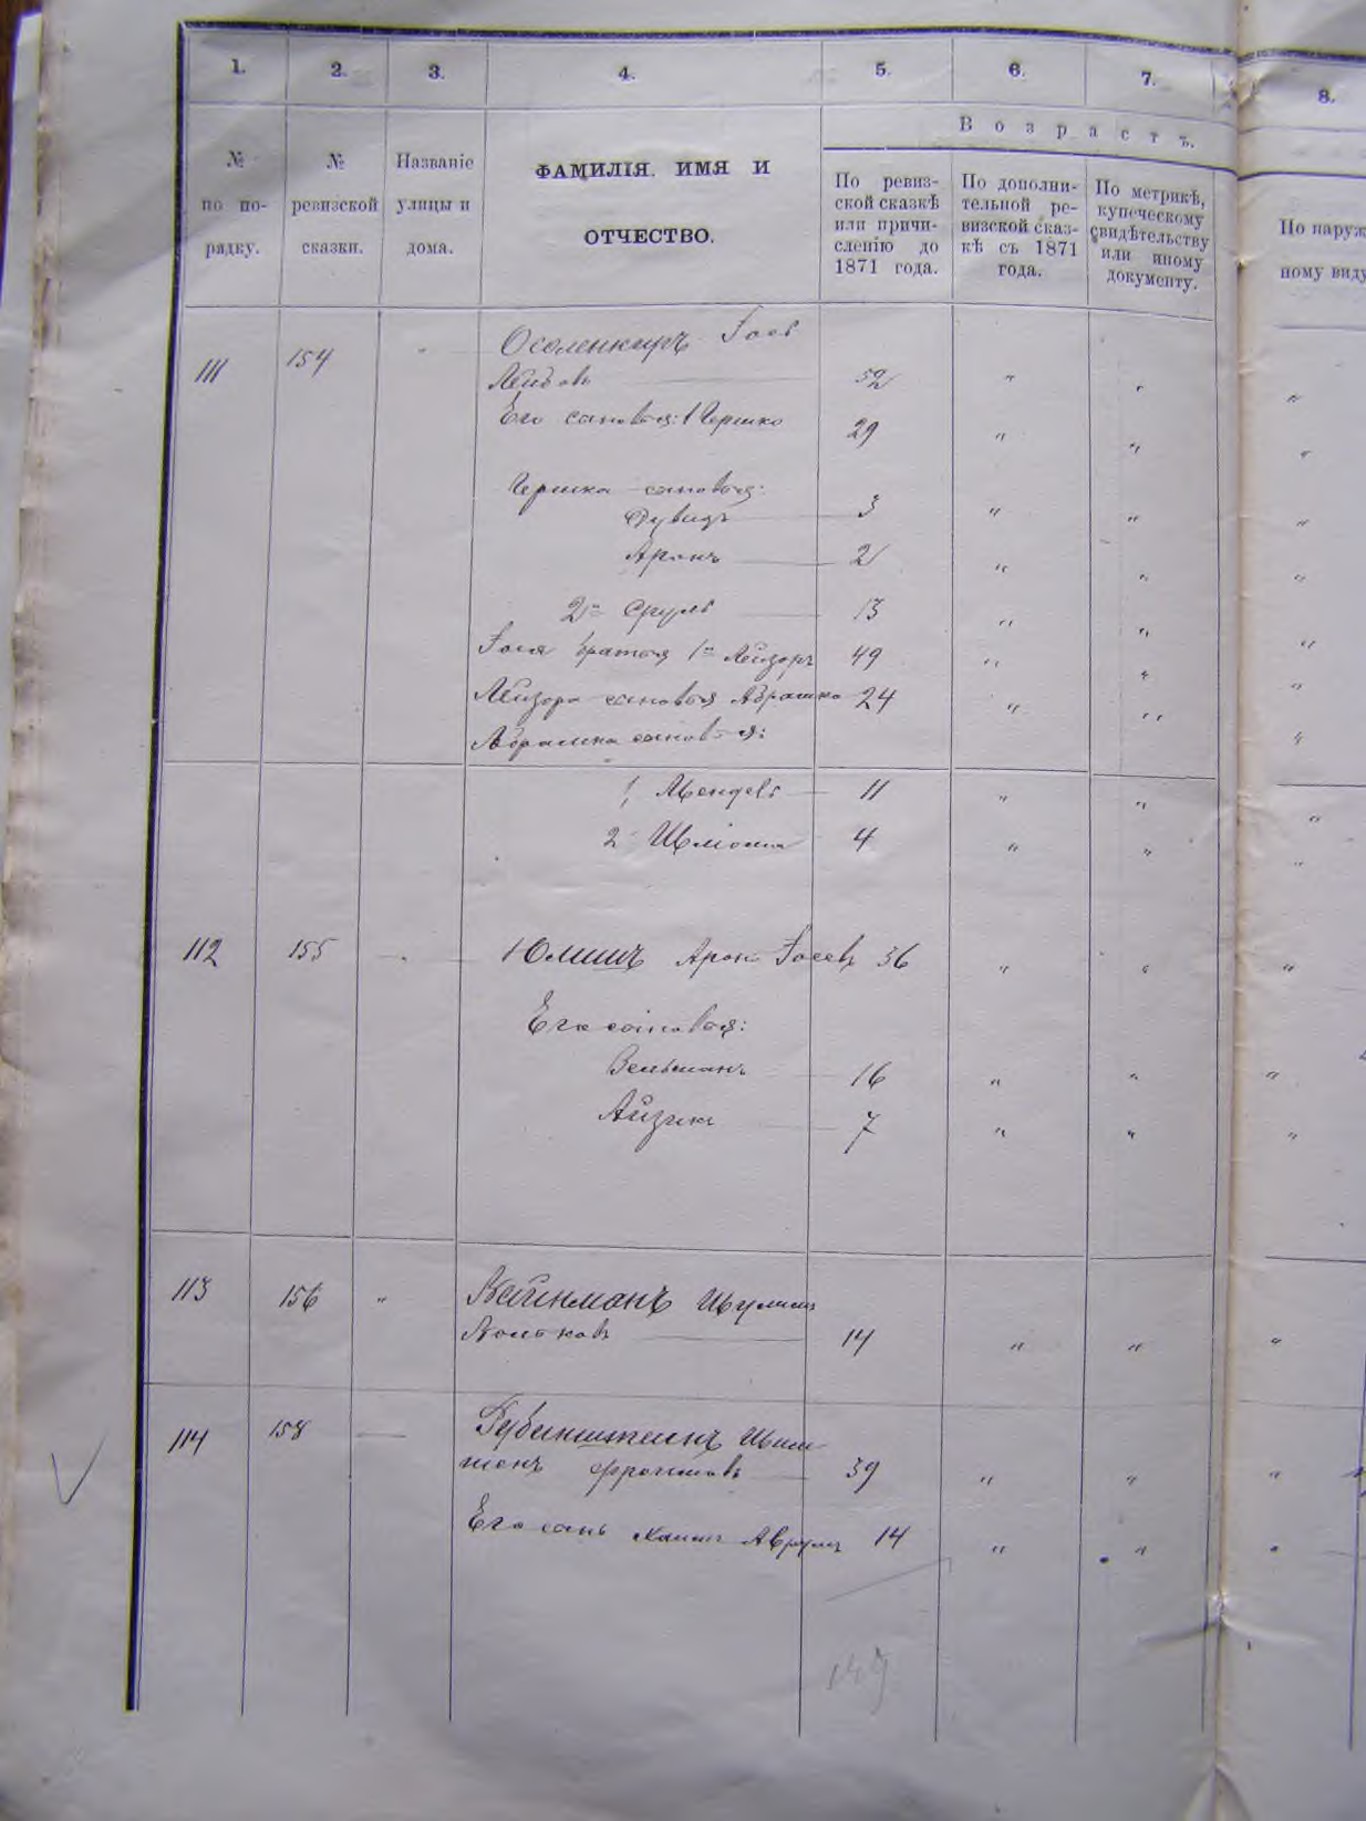 1. 2. 3. 4. 5. 6. 7. 8.
Возрастъ.
№ по порядку.
№ ревизской сказки.
Названіе улицы и дома.
ФАМИЛІЯ. ИМЯ И
ОТЧЕСТВО.
По ревиз-
ской сказкѣ
или причи-
сленію до
1871 года.
По дополни-
тельной ре-
визской сказ-
кѣ съ 1871
года.
По метрикѣ,
купеческому
свидѣтельству
или иному
документу.
По наруж
ному виду
111 154 " Іось
Лейбовъ 52 " " "
Его сыновья: 1 Гершко 29 " " "
Гершка сыновья:
Дувидъ 3 " " "
Аронъ 2 " " "
2й Сруль 13 " " "
Іося братья 1й Лейзоръ 49 " " "
Лейзора сыновья Абрашка 24 " " "
Абрашка сыновья:
1, Мендель 11 " " "
2й Шліома 4 " " "
112 155 " Аронъ Іосевъ 36 " " "
Его сыновья:
Вельманъ 16 " " "
Айзикъ 7 " " "
113 156 " Вейнманъ Шулимъ
14 " " "
114 158 — Рубинштейнъ Шим-
шонъ 39 " " "
Его сынъ Хаимъ Аврумъ 14 " " "
149